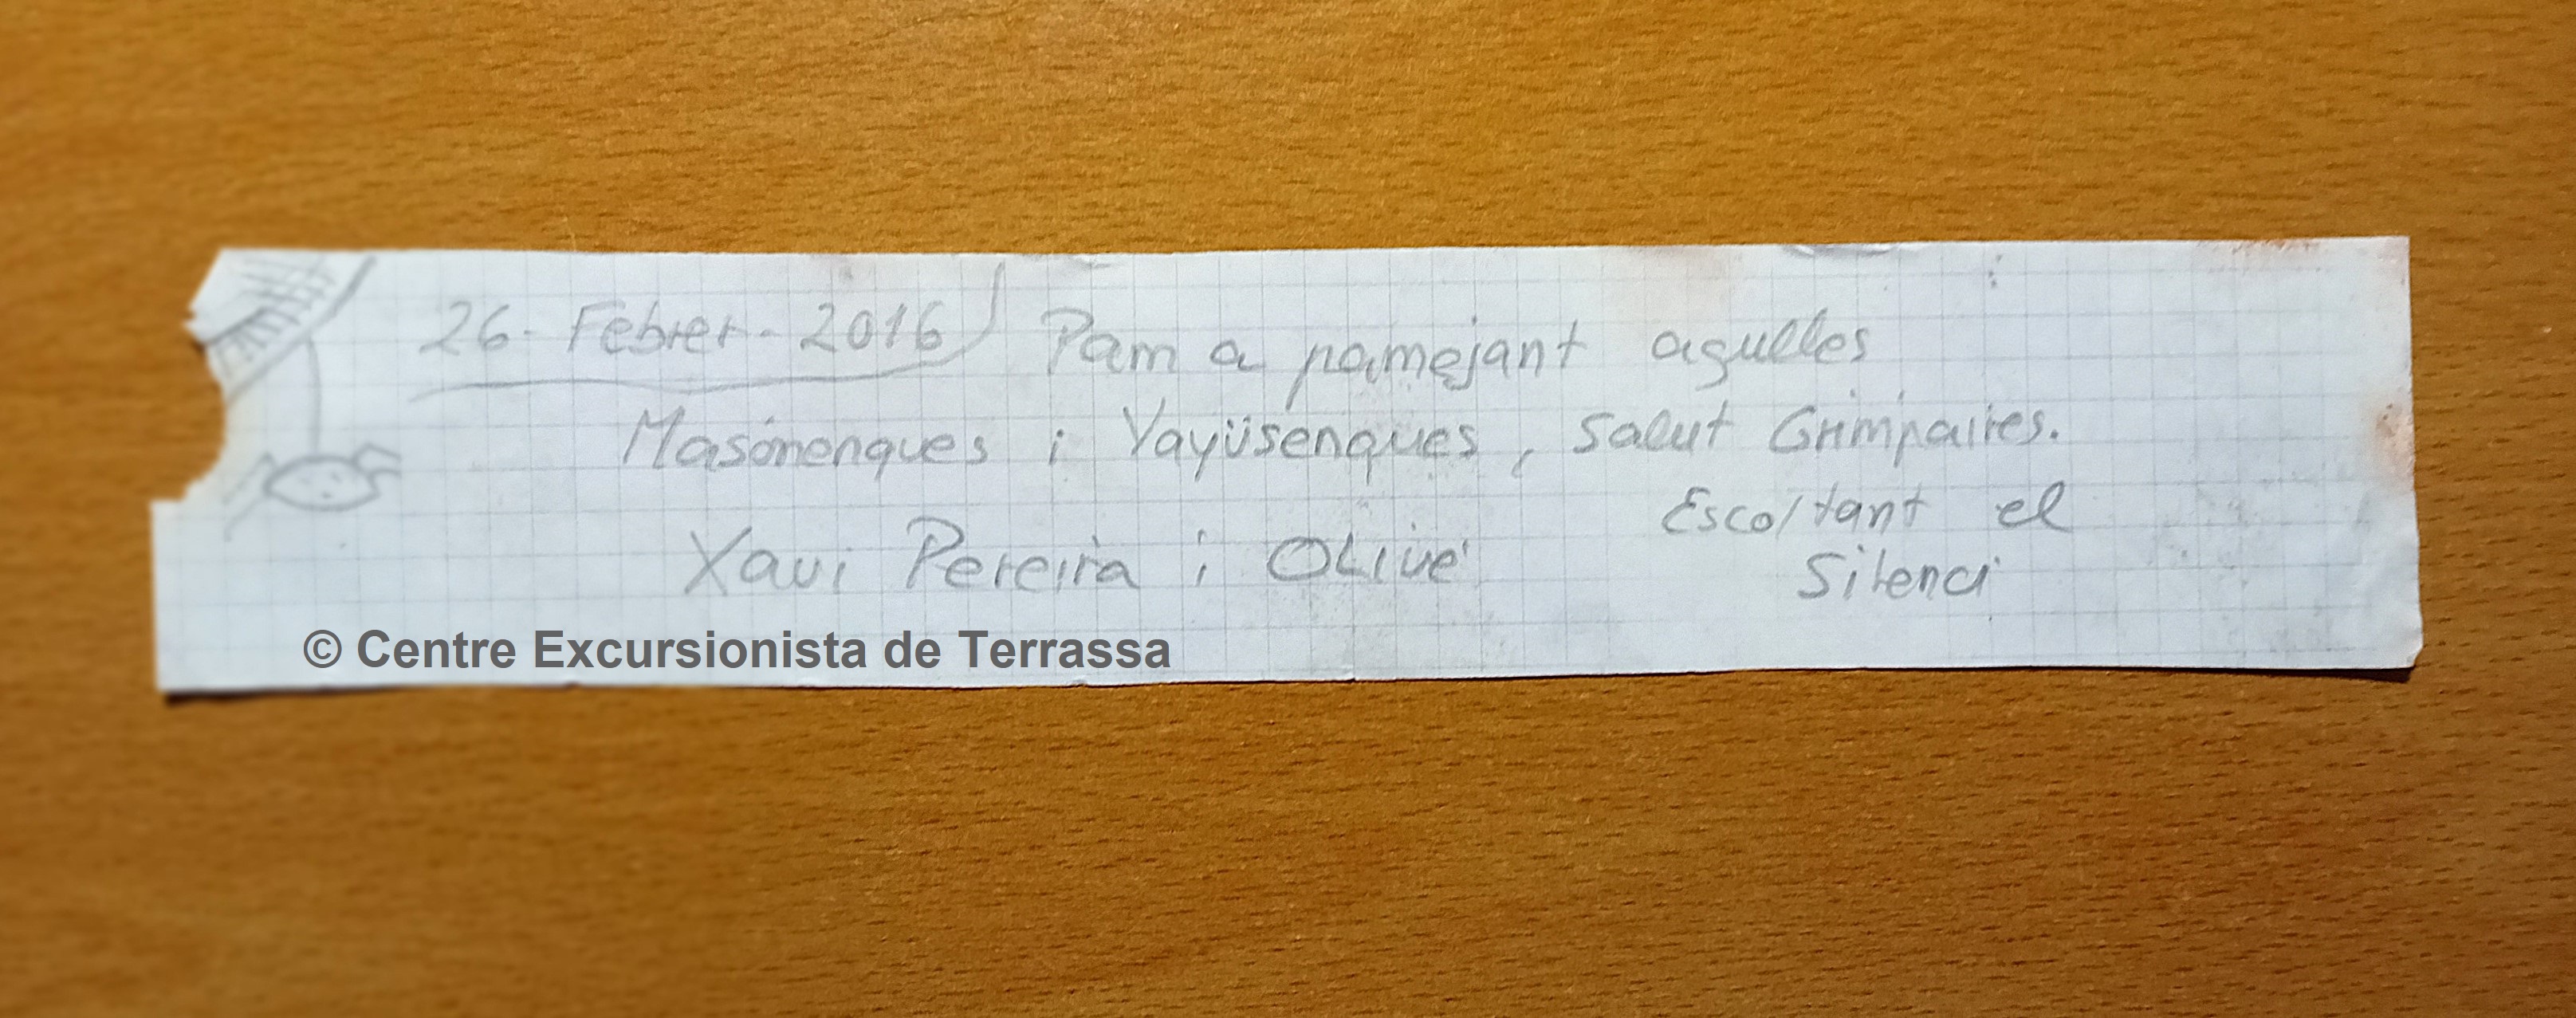 26-Febrer-2016 Pam a pamejant agulles
Masónenques i Yayüsenques, Salut Grimpaires.
Escoltant el
Xavi Pereira i OLivé
Silenci
© Centre Excursionista de Terrassa